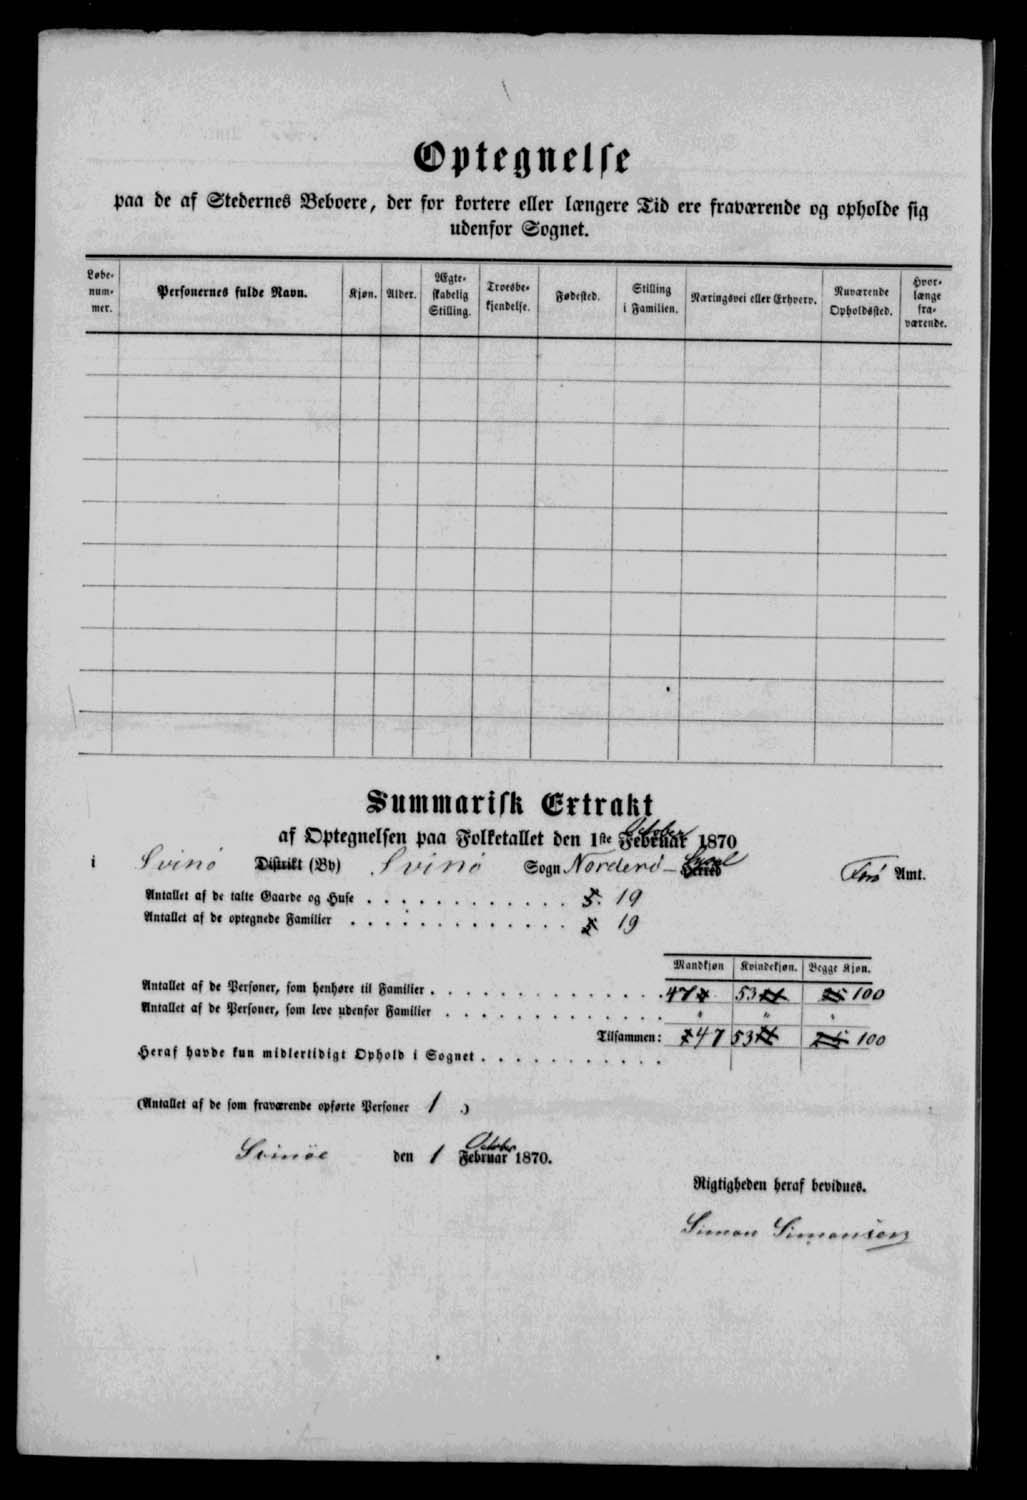 Optegnelse
paa de af Stedernes Beboere, der for kortere eller længere Tid ere fraværende og opholde sig
udenfor Sognet.
Løbe-
num-
mer.
Personernes fulde Navn.
Kjøn.
Alder.
Ægte-
skabelig
Stilling.
Troesbe-
kjendelse.
Fødested.
Stilling
i Familien.
Næringsvei eller Erhverv.
Nuværende
Opholdssted.
Hvor-
længe
fra-
værende.
Summarisk Extrakt
October
af Optegnelsen paa Folketallet den 1ste Februar 1870
i Svinø Distrikt (By) Svinø Sogn Norderø- Syssel Herred Færø Amt.
Antallet af de talte Gaarde og Huse . . . . . . . . . . . . 19
Antallet af de optegnede Familier . . . . . . . . . . . . 19
Mandkjøn Kvindekjøn. Begge Kjøn.
Antallet af de Personer, som henhøre til Familier . . . . . . . . . . . . 47 53 100
Antallet af de Personer, som leve udenfor Familier . . . . . . . . . . . . " " "
Tilsammen: 47 53 100
Heraf havde kun midlertidigt Ophold i Sognet . . . . . . . . . .
(Antallet af de som fraværende opførte Personer 1 .)
October
Svinöe den 1 Februar 1870.
Rigtigheden heraf bevidnes.
Simon Simonsen